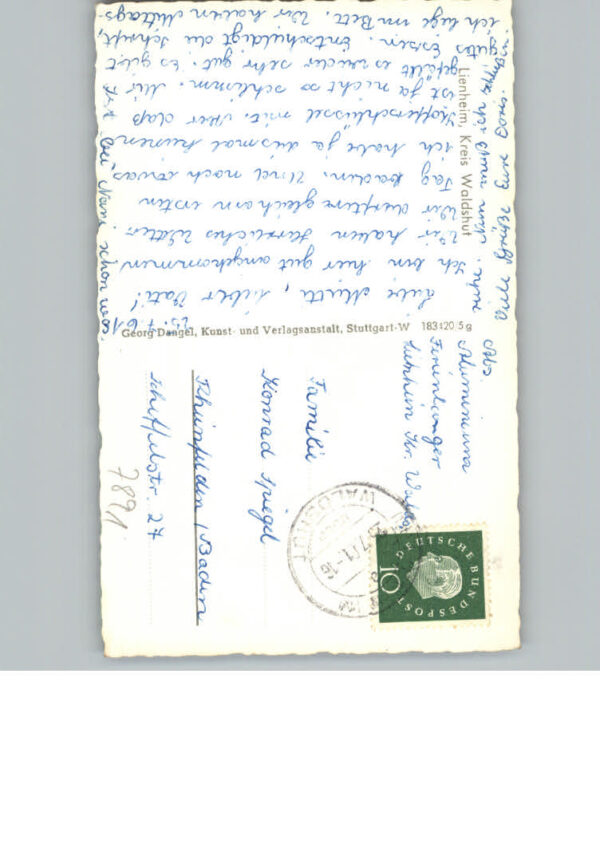 25.7.61
Liebe Mutti, lieber Vati!
Ich bin hier gut angekommen
Wir haben herrliches Wetter.
Wir durften gleich am ersten
Tag baden. Und noch etwas
ich habe ja diesmal keinen
Kofferschlüssel mit. Aber das
ist ja nicht so schlimm. Mir
gefällt es wieder sehr gut. Es gibt
gutes Essen. Entschuldigt die Schrift,
ich liege im Bett. Wir haben Mittags-
Viele Grüße Eure Doris.
Ist bei Nani schon was
Lienheim, Kreis Waldshut
Georg Dangel, Kunst- und Verlagsanstalt, Stuttgart-W 183420 5 g
Abs.
Aluminium
Ferienlager
Lienheim Kr. Waldshut
Familie
Konrad Spiegel
Rheinfelden / Baden
Schiffelstr. 27
7891
WALDSHUT
DEUTSCHE BUNDESPOST
10